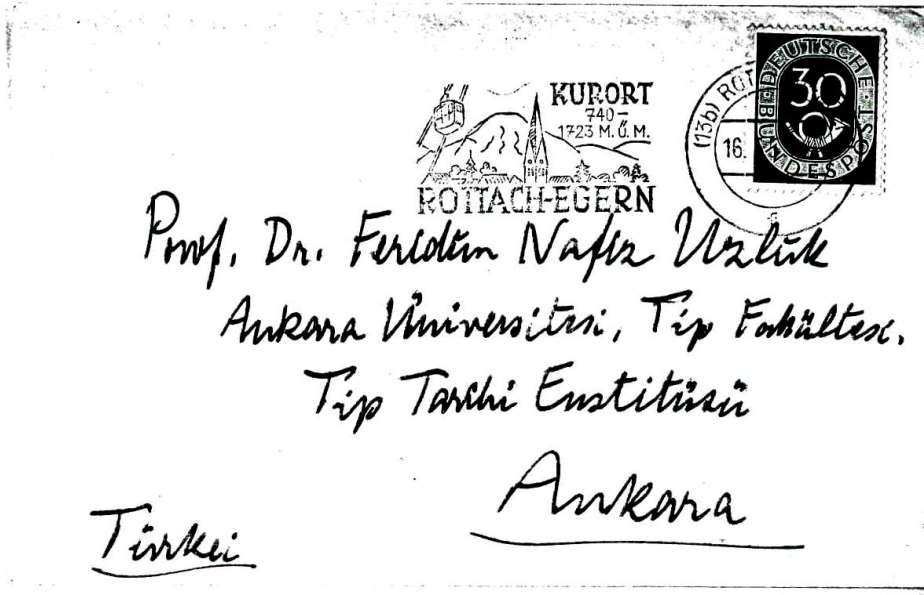 KURORT
740-
1723 M. Ü. M.
ROTTACH-EGERN
(13b) ROT
16.
DEUTSCHE
BUNDESPOST
30
Prof. Dr. Feridun Nafiz Uzluk
Ankara Üniversitesi, Tip Fakültesi.
Tip Tarihi Enstitüsü
Ankara
Türkei